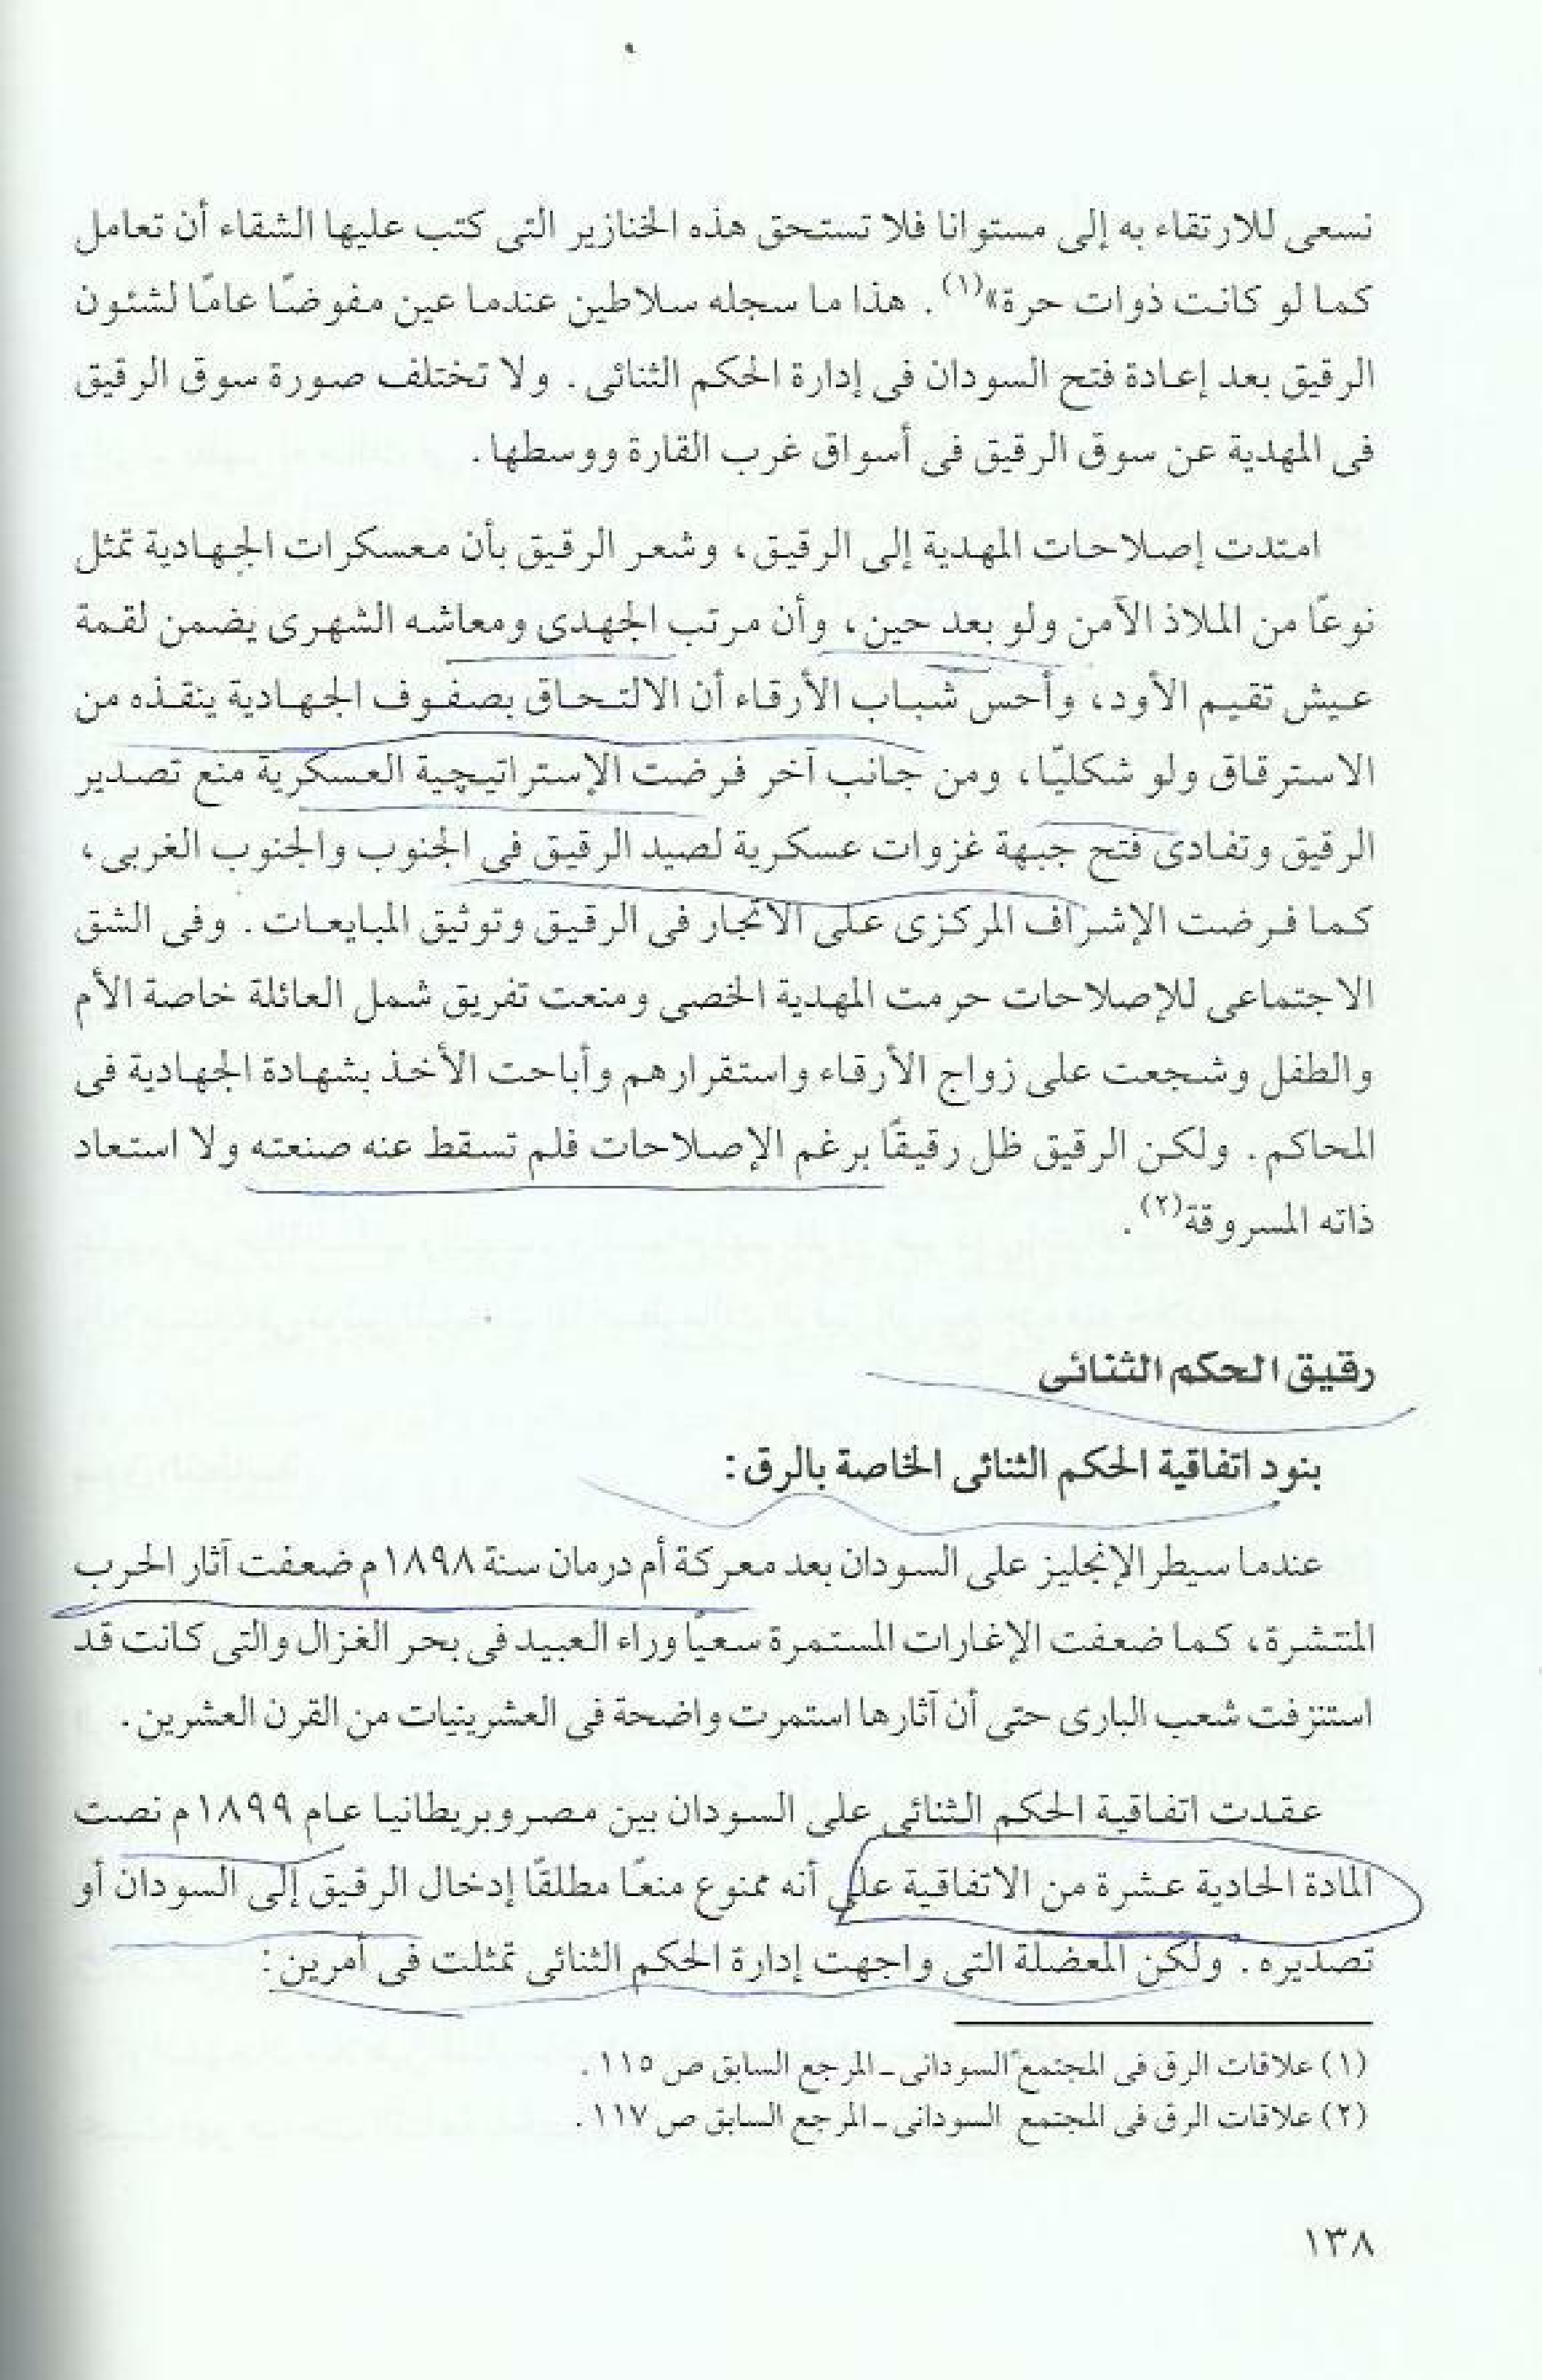 نسعى للارتقاء به إلى مستوانا فلا تستحق هذه الخنازير التى كتب عليها الشقاء أن تعامل
كما لو كانت ذوات حرة»(١). هذا ما سجله سلاطين عندما عين مفوضًا عامًا لشئون
الرقيق بعد إعادة فتح السودان فى إدارة الحكم الثنائى. ولا تختلف صورة سوق الرقيق
فى المهدية عن سوق الرقيق فى أسواق غرب القارة ووسطها.
امتدت إصلاحات المهدية إلى الرقيق، وشعر الرقيق بأن معسكرات الجهادية تمثل
نوعًا من الملاذ الآمن ولو بعد حين، وأن مرتب الجهدى ومعاشه الشهرى يضمن لقمة
عيش تقيم الأود، وأحس شباب الأرقاء أن الالتحاق بصفوف الجهادية ينقذه من
الاسترقاق ولو شكليًا، ومن جانب آخر فرضت الإستراتيچية العسكرية منع تصدير
الرقيق وتفادى فتح جبهة غزوات عسكرية لصيد الرقيق فى الجنوب والجنوب الغربى،
كما فرضت الإشراف المركزى على الاتجار فى الرقيق وتوثيق المبايعات. وفى الشق
الاجتماعى للإصلاحات حرمت المهدية الخصى ومنعت تفريق شمل العائلة خاصة الأم
والطفل وشجعت على زواج الأرقاء واستقرارهم وأباحت الأخذ بشهادة الجهادية فى
المحاكم. ولكن الرقيق ظل رقيقًا برغم الإصلاحات فلم تسقط عنه صنعته ولا استعاد
ذاته المسروقة(٢).
رقيق الحكم الثنائى
بنود اتفاقية الحكم الثنائى الخاصة بالرق:
عندما سيطر الإنجليز على السودان بعد معركة أم درمان سنة ١٨٩٨م ضعفت آثار الحرب
المنتشرة، كما ضعفت الإغارات المستمرة سعيًا وراء العبيد فى بحر الغزال والتى كانت قد
استنزفت شعب البارى حتى أن آثارها استمرت واضحة فى العشرينيات من القرن العشرين.
عقدت اتفاقية الحكم الثنائى على السودان بين مصر وبريطانيا عام ١٨٩٩م نصت
المادة الحادية عشرة من الاتفاقية على أنه ممنوع منعًا مطلقًا إدخال الرقيق إلى السودان أو
تصديره. ولكن المعضلة التى واجهت إدارة الحكم الثنائى تمثلت فى أمرين:
(١) علاقات الرق فى المجتمع السودانى ـ المرجع السابق ص ١١٥.
(٢) علاقات الرق فى المجتمع السودانى ـ المرجع السابق ص ١١٧.
١٣٨